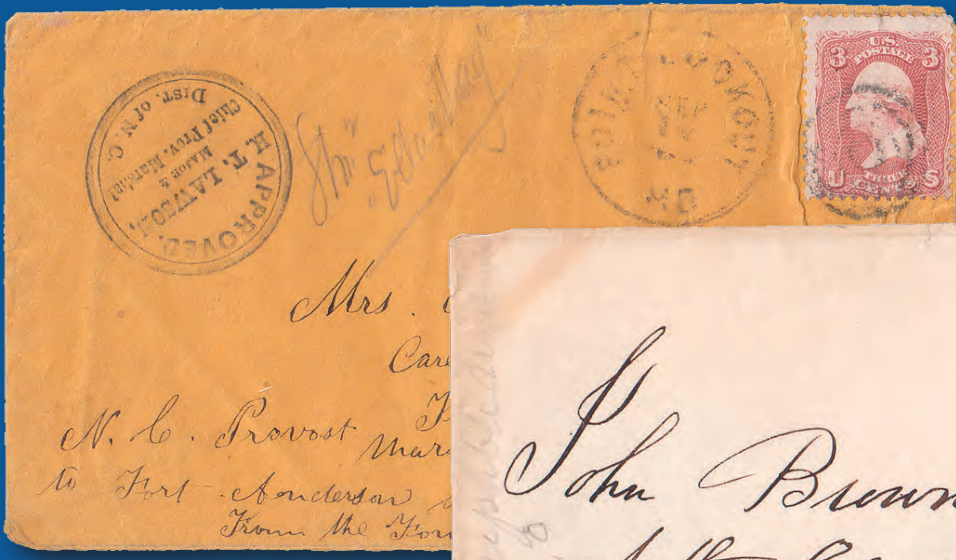 APPROVED,
H. T. LAWSON,
Major &
Chief Prov. Marshal
DIST. of N. C.
Str "Ella May"
POINT LOOKOUT
MD
U.S. POSTAGE
3 3
THREE
CENTS
U S
Mrs.
Care
N. C. Provost
Mar
to Fort Anderson
From the For
John Brown